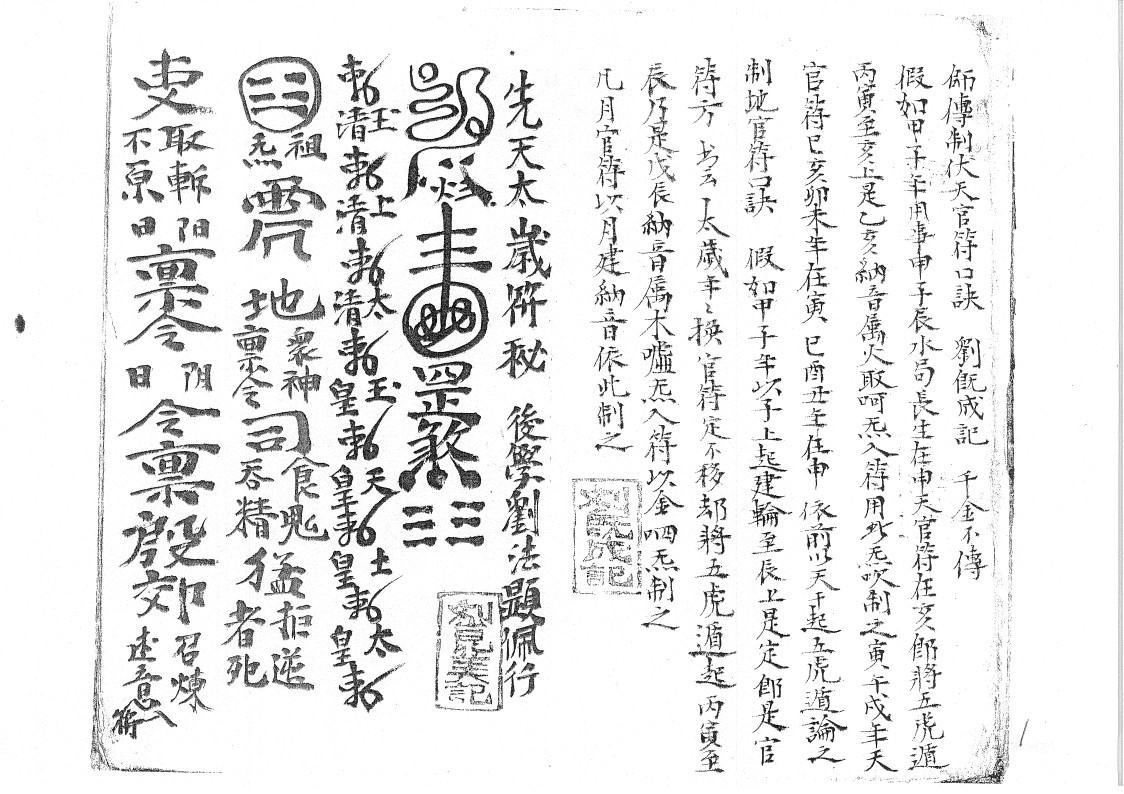 師傳制伏天官符口訣 劉既成記 千金不傳
假如甲子年用事申子辰水局長生在申天官符在亥郎將五虎遁
丙寅至亥上是乙亥納音属火取呵炁入符用此炁吹制之寅午戌年天
官符巳亥卯未年在寅巳酉丑年在申 依前以天干起五虎遁論之
制地官符口訣 假如甲子年以子上起建輪至辰上是定郎是官
符方 书云太歲年々換官符定不移却將五虎遁起丙寅至
辰乃是戊辰納音属木噓炁入符以金呬炁制之
凡月官符以月建納音依此制之
刘既成記
先天太歲符秘 後學劉法題佩行
罡煞
玉清 上清 太清 玉皇 天皇 土皇 太皇
祖炁
地 眾神稟令 司 食鬼吞精 猛拒逆者死
取斬不原
阳日 稟令
阴日 令稟
殷郊
召煉
符